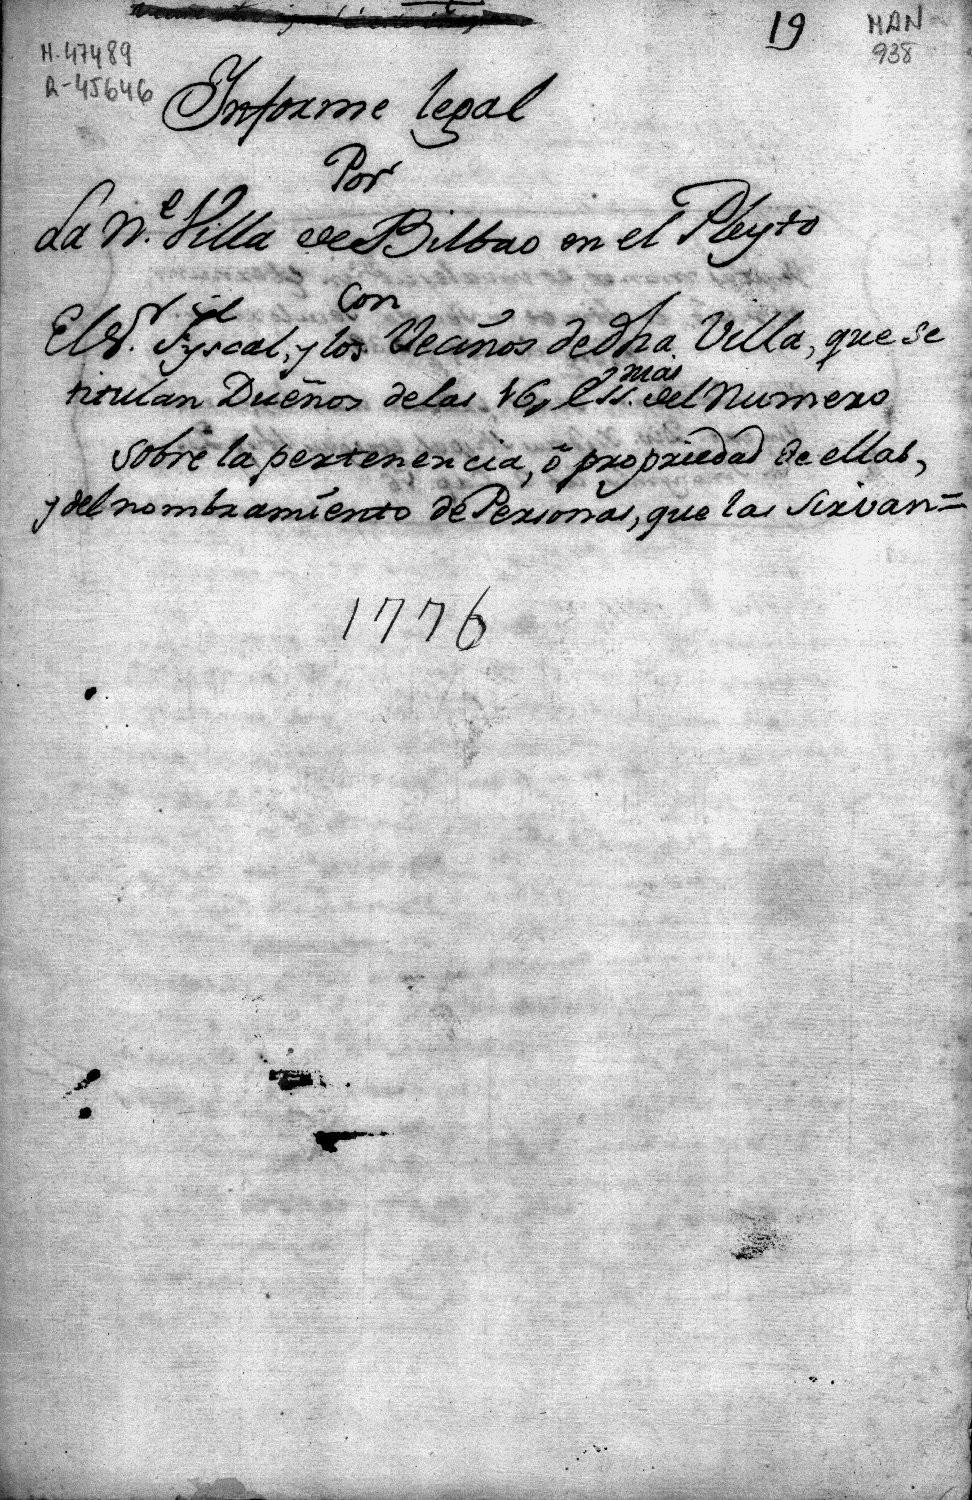 19
MAN
938
M-47489
R-45646
Informe legal
Por
La N.e Villa de Bilbao en el Pleyto
con
El S.r Fyscal, y los Vecinos de dha Villa, que se
titulan Dueños de las 16, Ess.nias del Numero
sobre la pertenencia, ô propriedad de ellas,
y del nombramiento de Personas, que las sirvan=
1776